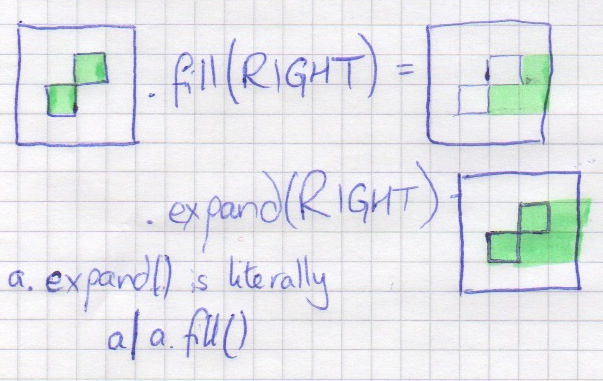 .fill(RIGHT) =
.expand(RIGHT) -
a.expand() is literally
a|a.fill()